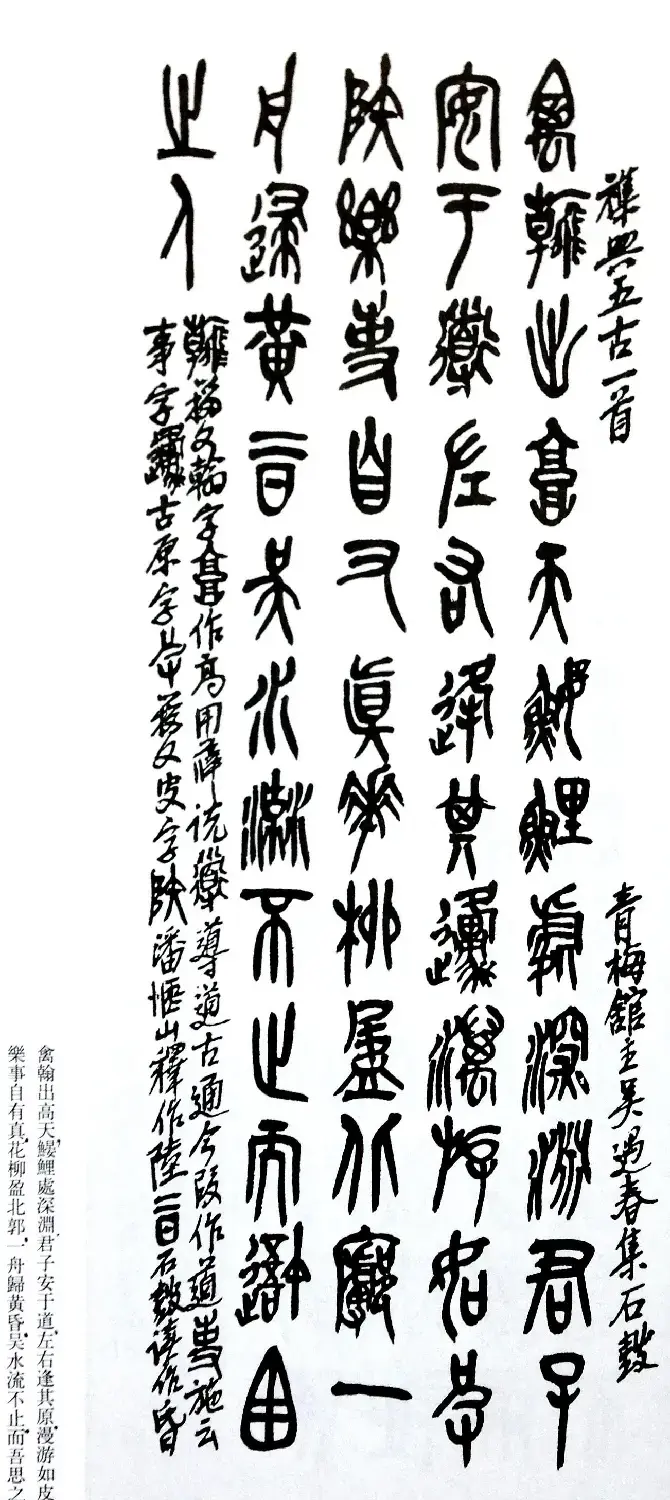 襍興五古一首
青梅館主吳春集石鼓
禽翰出高天鰋鯉處深淵君子
安于道左右逢其原漫游如皮
陸樂事自有真花柳盈北郭一
舟歸黃昏吳水流不止而吾思
之人
翰籀文翰字高作高用薛說導道古通今段作道事施云
事字邍古原字籀文皮字陸潘山釋作陸昏石鼓讀作昏
禽翰出高天,鰋鯉處深淵,君子安于道,左右逢其原,漫游如皮
樂事自有真,花柳盈北郭,一舟歸黃昏,吳水流不止,而吾思之